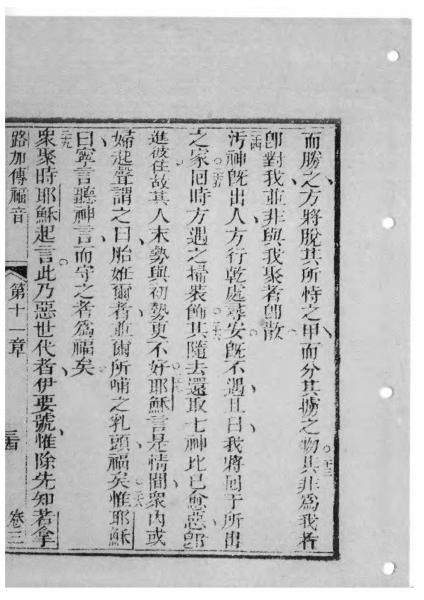 而勝之方將脫其所恃之甲而分其擄之物其非爲我者
卽對我並非與我聚者卽散
汚神旣出人方行乾處尋安旣不遇且曰我將囘于所出
之家囘時方遇之掃裝飾其隨去還取七神比已愈惡卽
進彼住故其人末勢與初勢更不好耶穌言是情間衆內或
婦起聲謂之曰胎姙爾者並爾所哺之乳頭福矣惟耶穌
曰寧言聽神言而守之者爲福矣
衆聚時耶穌起言此乃惡世代者伊要號惟除先知者拿
路加傳福音
第十一章
卷三
二三
二四
二五
二六
二七
二八
二九